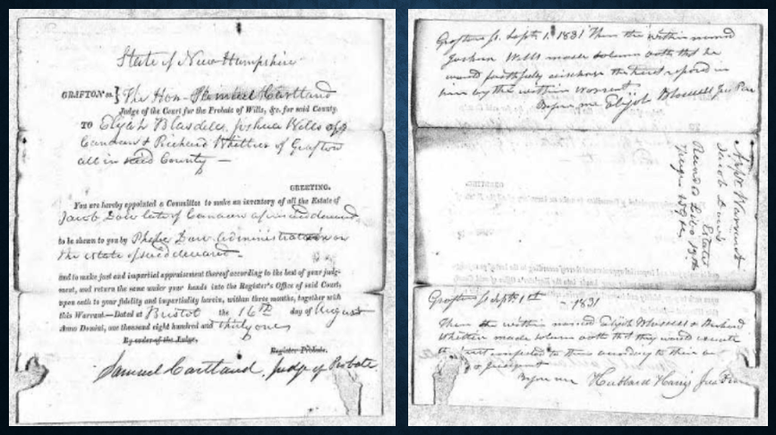 State of New-Hampshire
GRAFTON ss. } The Hon. Samuel Cartland
Judge of the Court for the Probate of Wills, &c. for said County.
TO Elijah Blasdell, Joshua Wells of
Canaan & Richard Whittier of Grafton
all in said County —
GREETING.
You are hereby appointed a Committee to make an inventory of all the Estate of
Jacob Dow late of Canaan
to be shown to you by Phebe Dow administratrix on
the estate of said deceased.
and to make just and impartial appraisement thereof according to the best of your judg-
ment, and return the same under your hands into the Register's Office of said Court,
upon oath to your fidelity and impartiality herein, within three months, together with
this Warrant.—Dated at Bristol the 16th day of August
Anno Domini, one thousand eight hundred and thirty one
By order of the Judge.
Register Probate.
Samuel Cartland, Judge of Probate
Grafton ss. Sept. 1. 1831 Then the within named
Joshua Wells made solemn oath that he
would faithfully the trust reposed in
him by the within warrant
Before me Elijah Blasdell Jus Peace
Appt. Warrant
Jacob Dow's
Estate
Grafton ss Sept 1st - 1831
Then the within named Elijah Blasdell & Richard
Whittier made solemn oath that they would execute
the trust to them according to their
judgment
Before me Hubbard Harris Jus Peace